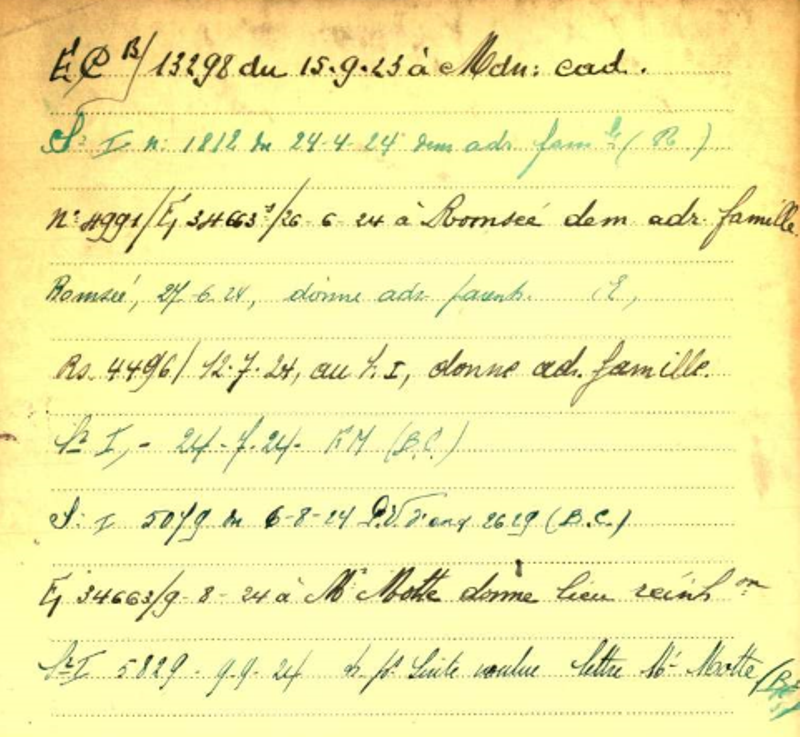 13298 du 15.9.23 à Mdn: cad.
Sr I n: 1812 du 24-4-24 dem adr. famlle (R.)
No 4991/E, 34663 /26-6-24 à Romseé dem adr. famille.
Romseé, 27-6-24, donne adr. parents. E,
Rs. 4496/ 12.7.24, au I, donne adr. famille.
Sr I, - 24-7-24- (B.C.)
S: I 5079 du 6-8-24 P.V. d'exq 2629 (B.C.)
34663/9-8-24 à Mr Motte donne lieu réinhon
Sr I 5829 - 9-9-24 suite voulue lettre Mr Motte